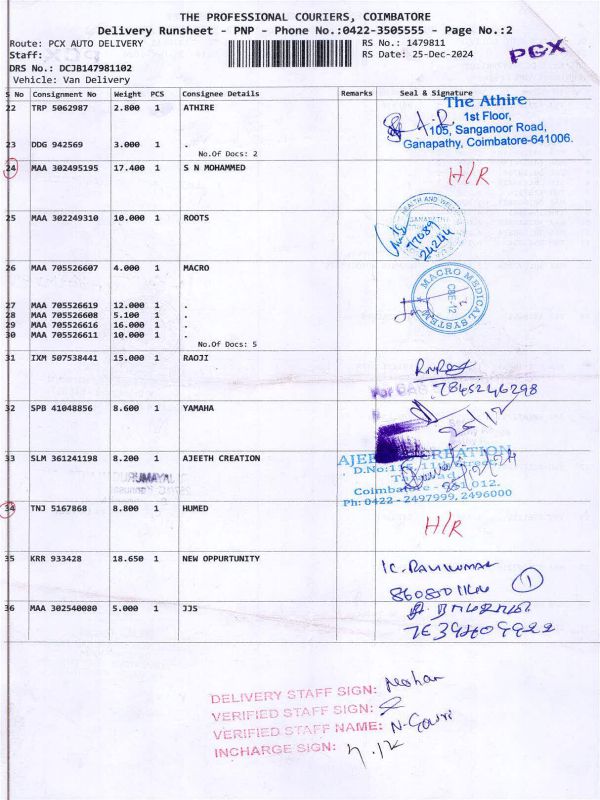 THE PROFESSIONAL COURIERS, COIMBATORE
Delivery Runsheet - PNP - Phone No.:0422-3505555 - Page No.:2
Route: PCX AUTO DELIVERY RS No.: 1479811
Staff: RS Date: 25-Dec-2024 PCX
DRS No.: DCJB147981102
Vehicle: Van Delivery
S No Consignment No Weight PCS Consignee Details Remarks Seal & Signature
22 TRP 5062987 2.800 1 ATHIRE
The Athire
1st Floor,
105, Sanganoor Road,
Ganapathy, Coimbatore-641006.
23 DDG 942569 3.000 1 .
No.Of Docs: 2
24 MAA 302495195 17.400 1 S N MOHAMMED H/R
25 MAA 302249310 10.000 1 ROOTS
26 MAA 705526607 4.000 1 MACRO
MACRO MEDICAL SYSTEM
CBE-12
27 MAA 705526619 12.000 1 .
28 MAA 705526608 5.100 1 .
29 MAA 705526616 16.000 1 .
30 MAA 705526611 10.000 1 .
No.Of Docs: 5
31 IXM 507538441 15.000 1 RAOJI
7845246298
32 SPB 41048856 8.600 1 YAMAHA
25/12
33 SLM 361241198 8.200 1 AJEETH CREATION
AJEETH CREATION
Coimbatore - 641 012.
Ph: 0422 - 2497999, 2496000
34 TNJ 5167868 8.800 1 HUMED H/R
35 KRR 933428 18.650 1 NEW OPPURTUNITY
1
36 MAA 302540080 5.000 1 JJS
DELIVERY STAFF SIGN: Mohan
VERIFIED STAFF SIGN:
VERIFIED STAFF NAME: N-Gowri
INCHARGE SIGN: